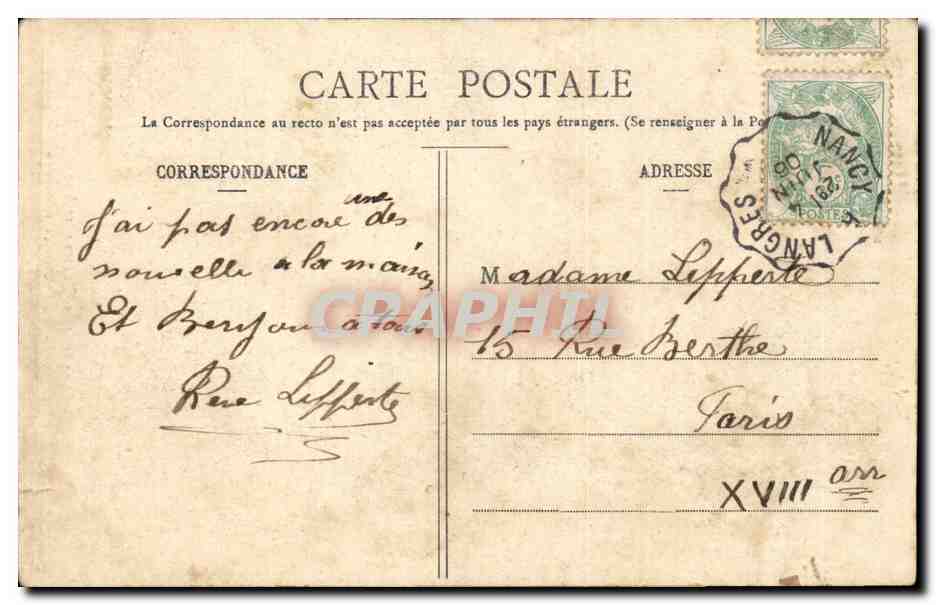 CARTE POSTALE
La Correspondance au recto n'est pas acceptée par tous les pays étrangers. (Se renseigner à la Po
CORRESPONDANCE
J'ai pas encore une des
nouvelle a la maison
Et Bonjour a tous
Rene Lefferte
ADRESSE
Madame Lefferte
15 Rue Berthe
Paris
XVIII arr
NANCY A LANGRES
JUIN
06
POSTES
CRAPHIL